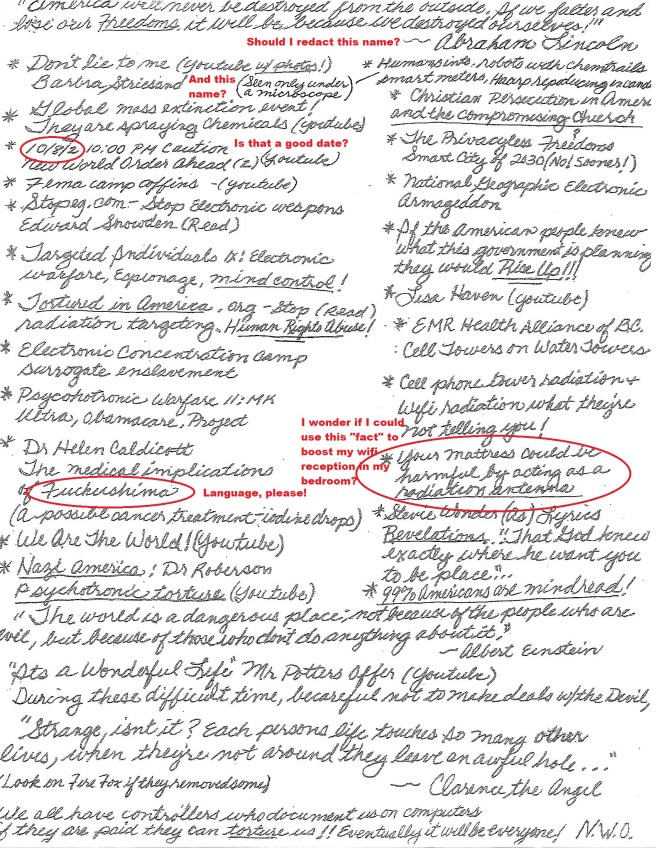 "America will never be destroyed from the outside. If we falter and
lose our Freedoms, it will be, because we destroyed ourselves!"
Should I redact this name?
~ Abraham Lincoln
* Don't lie to me (Youtube w/photos!)
Barbra Striesand
And this name?
(Seen only under a microscope)
* Global mass extinction event!
They are spraying Chemicals (youtube)
* 10/8/2 10:00 PM Caution
Is that a good date?
New World Order Ahead (2) (Youtube)
* Fema camp coffins - (Youtube)
* Stopeg.com - Stop Electronic weapons
Edward Snowden (Read)
* Targeted Individuals IX: Electronic
warfare, Espionage, mind control!
* Tortured in America.org - Stop (Read)
radiation targeting. Human Rights Abuse!
* Electronic Concentration Camp
Surrogate enslavement
* Psycohotronic Warfare II: MK
Ultra, Obamacare, Project
* Dr Helen Caldicott
The medical implications
of Fuckushima
Language, please!
(A possible cancer treatment-iodine drops)
* We Are The World! (Youtube)
* Nazi America: Dr Roberson
Psychotronic torture (Youtube)
* Humans into robots with chemtrails
smart meters, Haarp
* Christian Persecution in
and the Compromising Church
* The Privacyless Freedoms
Smart City of 2030 (No! Sooner!)
* National Geographic Electronic
Armageddon
* If the American people knew
what this government is planning
they would Rise Up!!!
* Lisa Haven (youtube)
* EMR Health Alliance of BC.
: Cell Towers on Water Towers
* Cell phone tower radiation +
Wifi radiation what they're
not telling you!
I wonder if I could
use this "fact" to
boost my wifi
reception in my
bedroom?
* Your mattress could be
harmful by acting as a
radiation antenna
* Stevie Wonder (As) Lyrics
Revelations. "That God knew
exactly where he want you
to be place"...
* 99% Americans are mindread!
"The world is a dangerous place; not because of the people who are
evil, but because of those who don't do anything about it."
~ Albert Einstein
"Its a Wonderful Life" Mr Potters Offer (Youtube)
During these difficult time, becareful not to make deals w/the Devil,
"Strange, isnt it? Each persons life touches so many other
lives, when they're not around they leave an awful hole..."
(Look on Fire Fox if they removed some)
~ Clarence, the Angel
We all have controllers who document us on computers
if they are paid they can torture us!! Eventually it will be everyone! N.W.O.